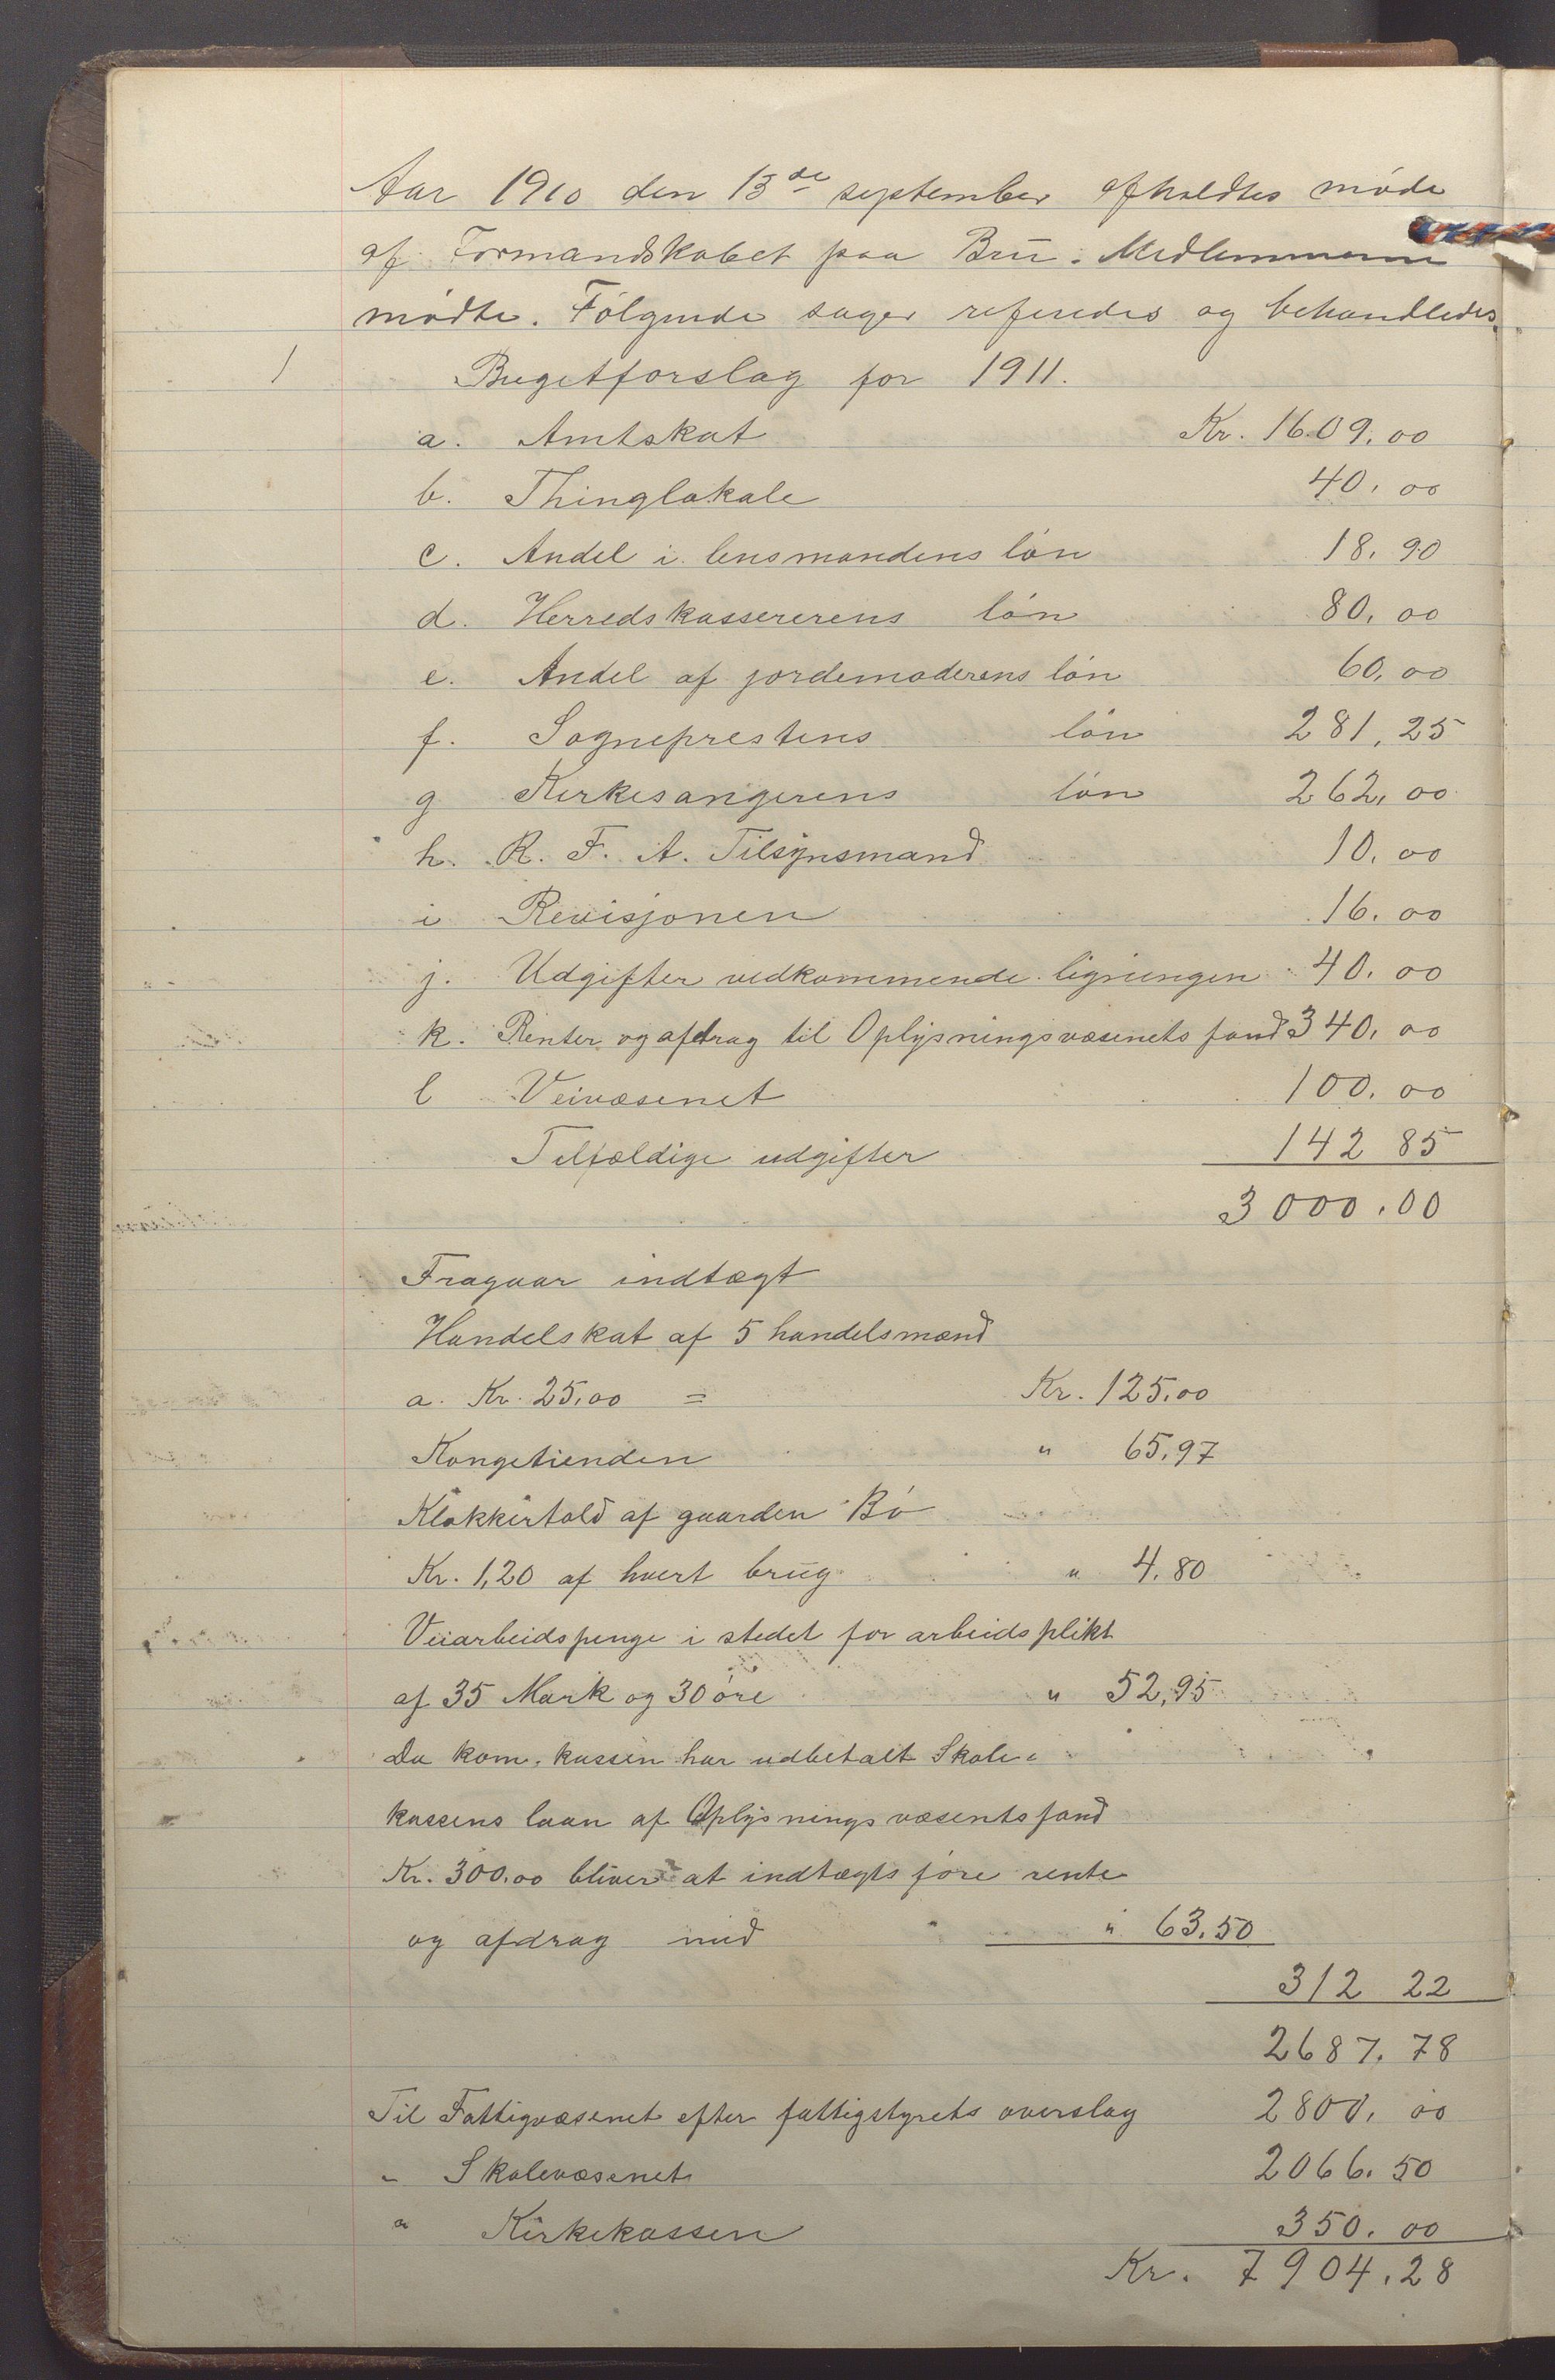 Aar 1910 den 13de september afholdtes møde
af Formandskabet paa Bru. Medlemmerne
mødte. Følgende sager referedes og behandledes.
1 Bugetforslag for 1911.
a. Amtskat Kr. 1609,00
b. Thinglokale 40,00
c. Andel i lensmandens løn 18,90
d. Herredskassererens løn 80,00
e. Andel af jordemoderens løn 60,00
f. Sogneprestens løn 281,25
g Kirkesangerens løn 262,00
h. R. F. A. Tilsynsmand 10,00
i Revisjonen 16,00
j. Udgifter vedkommende ligningen 40,00
k. Renter og afdrag til Oplysningsvæsenets fond 340,00
l Veivæsenet 100,00
Tilfældige udgifter 142 85
3000,00
Fragaar indtægt
Handelskat af 5 handelsmænd
a. Kr. 25,00 = Kr. 125,00
Kongetienden " 65,97
Klokkertold af gaarden Bø
Kr. 1,20 af hvert brug " 4,80
Veiarbeidspenge i stedet for arbeidsplikt
af 35 Mark og 30 øre " 52,95
Da kom. kassen har udbetalt Skole-
kassens laan af Oplysningsvæsentsfond
Kr. 300,00 bliver at indtægtsføre rente
og afdrag med " 63,50
312 22
2687,78
Til Fattigvæsenet efter fattigstyrets overslag 2800,00
" Skolevæsenet 2066,50
" Kirkekassen 350,00
Kr. 7904,28